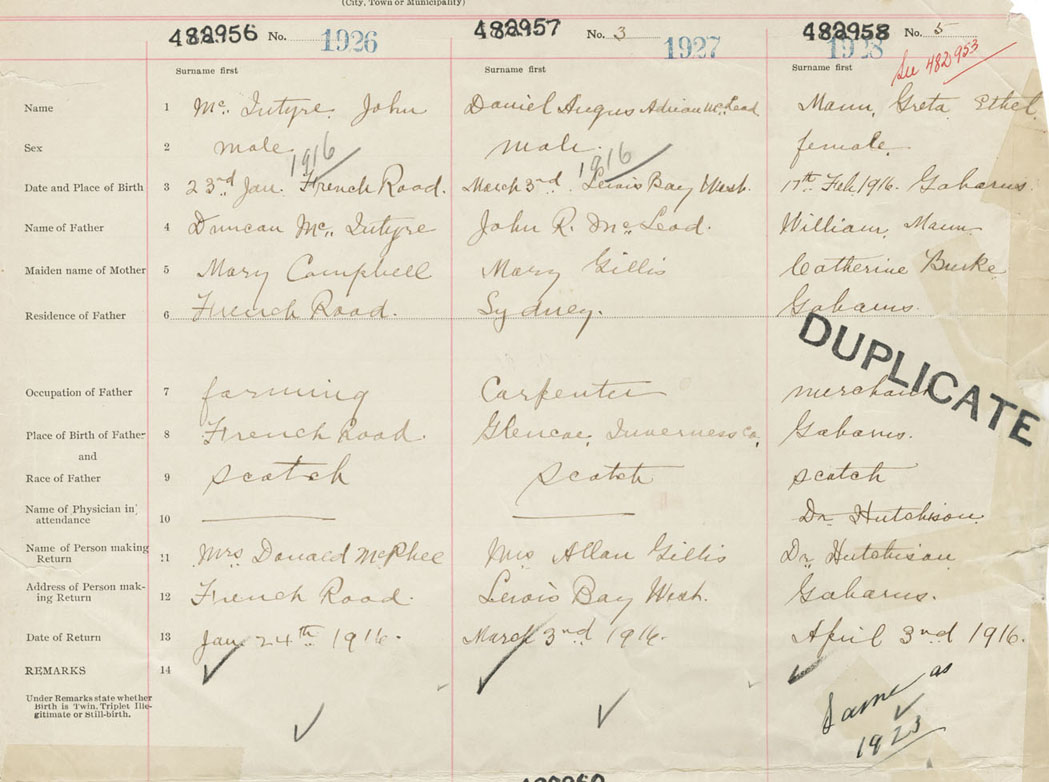 (City, Town or Municipality)
482956 No. 1926 482957 No. 3 1927 482958 No. 5 1928
See 482953
Surname first Surname first Surname first
Name 1 Mc. Intyre, John Daniel Angus Adrian McLeod Mann, Greta Ethel
Sex 2 male male. female.
1916 1916
Date and Place of Birth 3 23rd Jan. French Road. March 3rd Lewis Bay West. 17th Feb. 1916. Gabarus.
Name of Father 4 Duncan Mc. Intyre John R. McLeod. William, Mann
Maiden name of Mother 5 Mary Campbell Mary Gillis Catherine Burke
Residence of Father 6 French Road. Sydney. Gabarus.
DUPLICATE
Occupation of Father 7 farming Carpenter merchant
Place of Birth of Father 8 French Road. Glencoe, Inverness Co, Gabarus.
and
Race of Father 9 Scotch Scotch Scotch
Name of Physician in
attendance 10 Dr. Hutchison
Name of Person making
Return 11 Mrs Donald McPhee Mrs Allan Gillis Dr. Hutchison
Address of Person mak-
ing Return 12 French Road. Lewis Bay West. Gabarus.
Date of Return 13 Jan 24th 1916. March 3rd 1916. April 3rd 1916.
REMARKS 14
Under Remarks state whether
Birth is Twin, Triplet Ille-
gitimate or Still-birth.
Same as
1923
482960